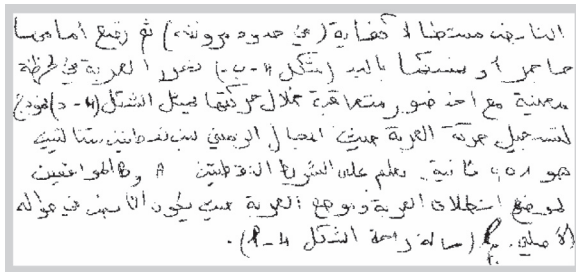 النابض مستطيلا كفاية (في حدود مرونته) ثم نضع أمامها
حاجز أو نمسكها باليد (شكل 4-ب-) نحرر العربة في لحظة
معينة مع أخذ صور متعاقبة خلال حركتها يمثل الشكل (4-د) نموذج
لتسجيل حركة العربة حيث المجال الزمني بين نقطتين متتاليتين
هو 0,02 ثانية. نعلم على الشريط النقطتين A و B الموافقتين
لموضع انطلاق العربة وموضع العربة حين يكون النابض في طوله
الأصلي. (حالة راحة الشكل 4-أ).